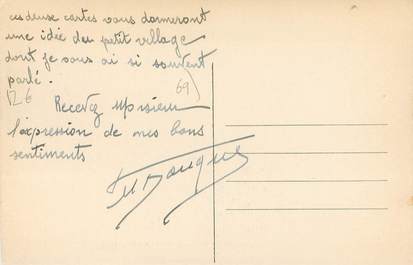 ces deux cartes vous donneront
une idée du petit village
dont je vous ai si souvent
parlé.
126
69)
Recevez Monsieur
l'expression de mes bons
sentiments